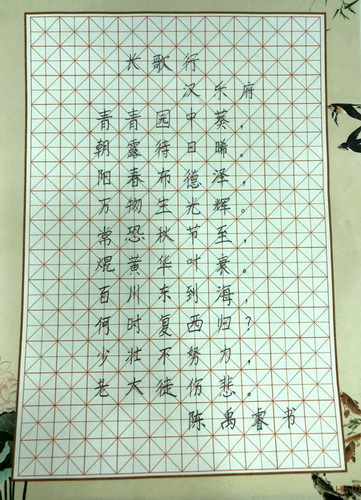 长歌行
汉乐府
青青园中葵，
朝露待日晞。
阳春布德泽，
万物生光辉。
常恐秋节至，
焜黄华叶衰。
百川东到海，
何时复西归？
少壮不努力，
老大徒伤悲。
陈禹睿书